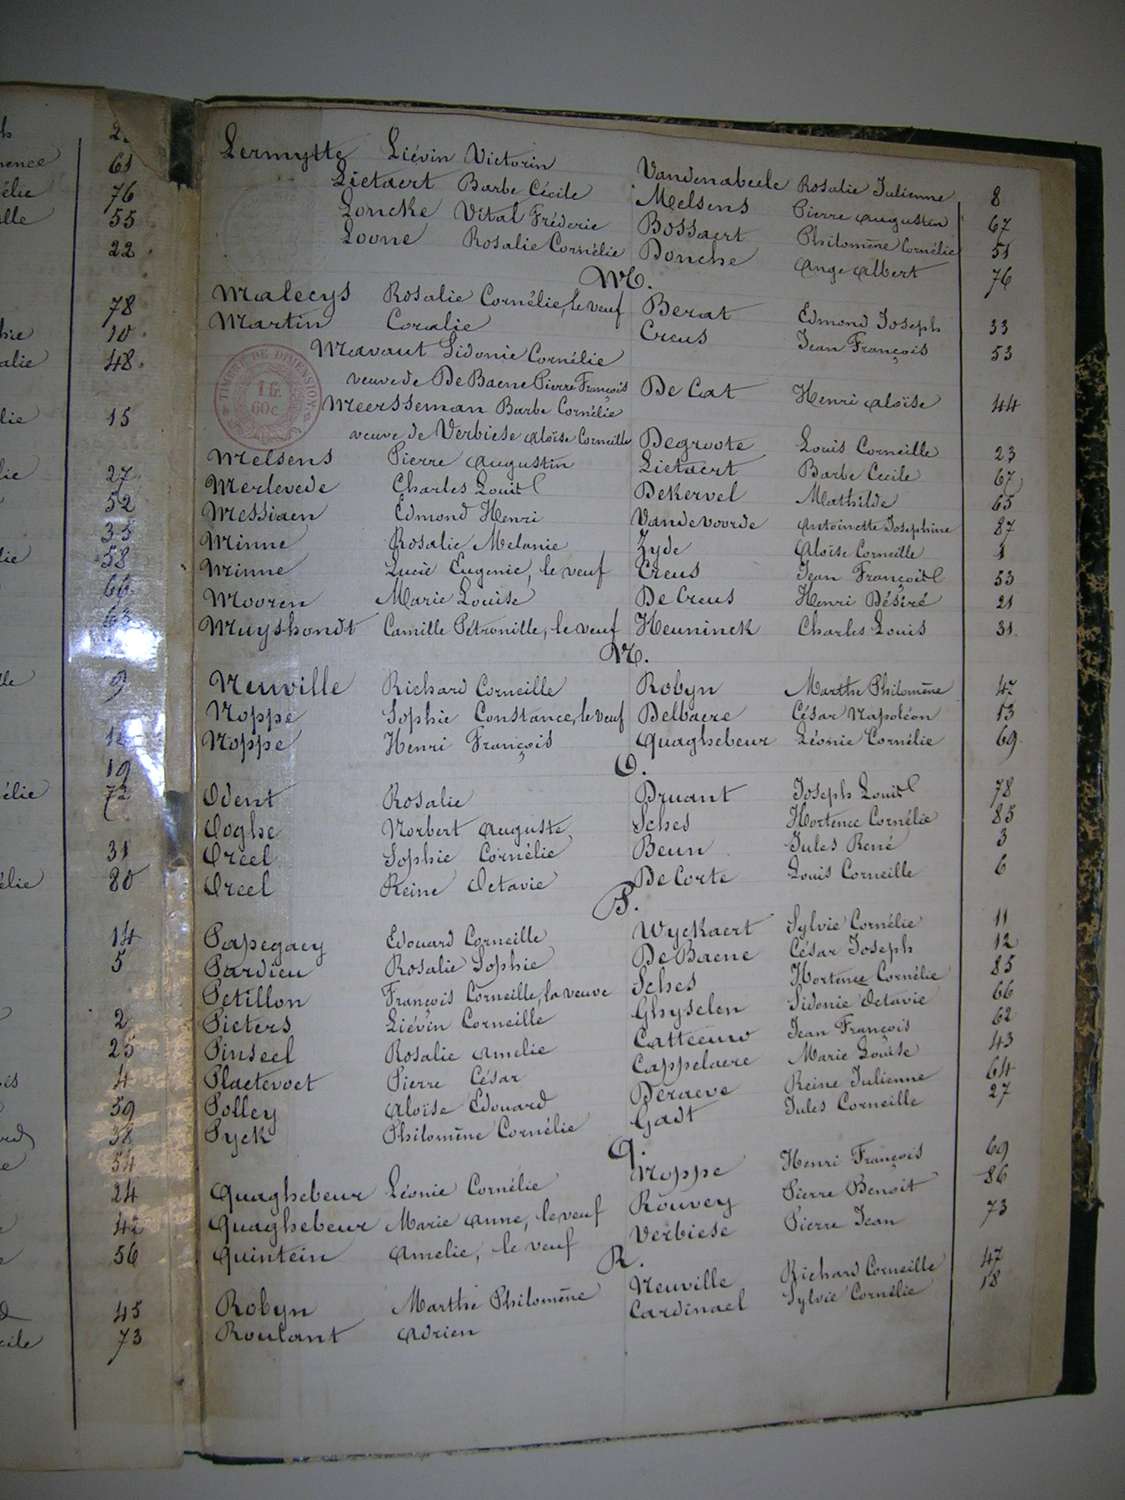 Lermytte Liévin Victorin Vandenabeele Rosalie Julienne 8
Lietaert Barbe Cécile Melsens Pierre Augustin 67
Loncke Vital Fréderic Bossaert Philomène Cornélie 51
Loone Rosalie Cornélie Donche Ange Albert 76
M.
Malecys Rosalie Cornélie, le veuf Berat Edmond Joseph 33
Martin Coralie Creus Jean François 53
Mavaut Sidonie Cornélie
veuve de De Baene Pierre François De Cat Henri Aloïse 44
Meersseman Barbe Cornélie
veuve de Verbiese Aloïse Corneille Degroote Louis Corneille 23
TIMBRE DE DIMENSION
1 fr. 60 c.
Melsens Pierre Augustin Lietaert Barbe Cecile 67
Merlevede Charles Louis Dekervel Mathilde 65
Messiaen Edmond Henri Vandevoorde Antoinette Josephine 87
Minne Rosalie Melanie Zyde Aloïse Corneille 1
Minne Lucie Eugenie, le veuf Creus Jean François 53
Mooren Marie Louise De Creus Henri Désiré 21
Muyshondt Camille Pétronille, le veuf Heuninck Charles Louis 31
N.
Neuville Richard Corneille Robyn Marthe Philomène 47
Noppe Sophie Constance, le veuf Delbaere César Napoléon 13
Noppe Henri François Quaghebeur Léonie Cornélie 69
O.
Odent Rosalie Druant Joseph Louis 78
Ooghe Norbert Auguste Sches Hortence Cornélie 85
Oreel Sophie Cornélie Beun Jules René 3
Oreel Reine Octavie De Corte Louis Corneille 6
P.
Papegaey Edouard Corneille Wyckaert Sylvie Cornélie 11
Pardieu Rosalie Sophie De Baene César Joseph 12
Petillon François Corneille, la veuve Sches Hortence Cornélie 85
Pieters Liévin Corneille Ghyselen Sidonie Octavie 66
Pinseel Rosalie Amelie Catteeuw Jean François 62
Plaetevoet Pierre César Cappelaere Marie Louise 43
Polley Aloïse Edouard Deraeve Reine Julienne 64
Pyck Philomène Cornélie Gadt Jules Corneille 27
Q.
Quaghebeur Léonie Cornélie Noppe Henri François 69
Quaghebeur Marie Anne, le veuf Rouvey Pierre Benoit 86
Quintein Amelie, le veuf Verbiese Pierre Jean 73
R.
Robyn Marthe Philomène Neuville Richard Corneille 47
Roulant Adrien Cardinael Sylvie Cornélie 18
61
76
55
22
78
10
48
15
27
52
35
58
66
63
9
19
72
31
80
14
5
2
25
4
59
38
54
24
42
56
45
73